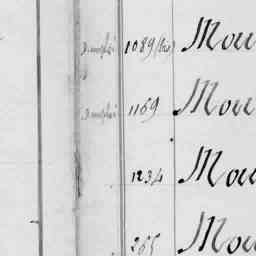 1089 (bis) Mou
1169 Mou
1234 Mou
265 Mou